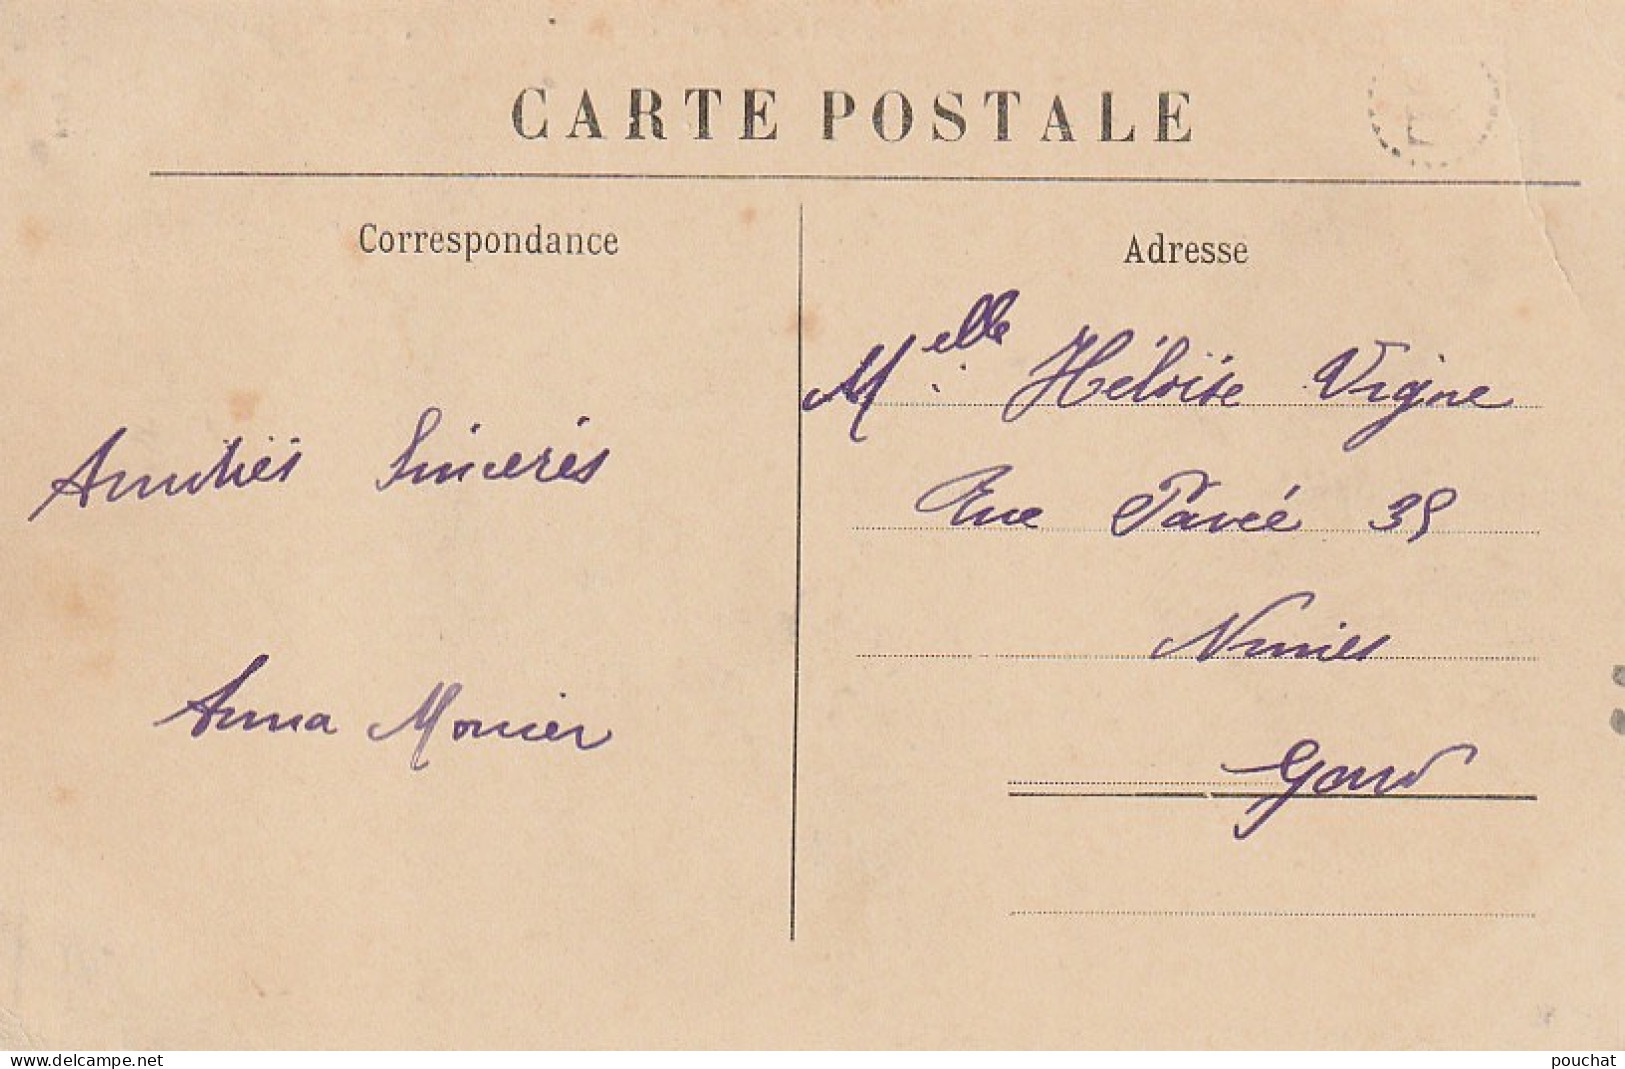 CARTE POSTALE
Correspondance
Amitiés Sincères
Anna Monier
Adresse
Melle Héloïse Vigne
Rue Pavée 39
Nimes
Gard
www.delcampe.net
pouchat